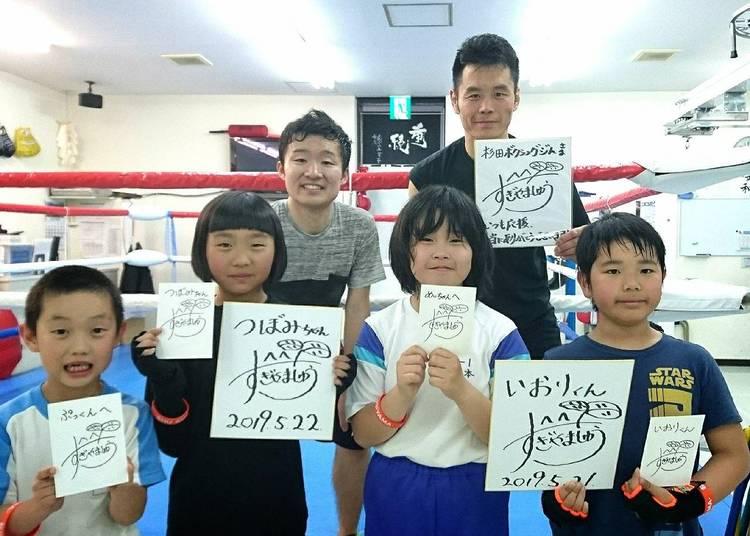 杉田ボクシングジムさま
すぎやましゅう
いつも応援、
つばみちゃんへ
すぎやましゅう
つぼみちゃん
すぎやましゅう
2019.5.22
めいちゃんへ
すぎやましゅう
いおりくん
すぎやましゅう
2019.5.21
いおりくん
すぎやましゅう
ぷっくんへ
すぎやましゅう
STAR
WARS